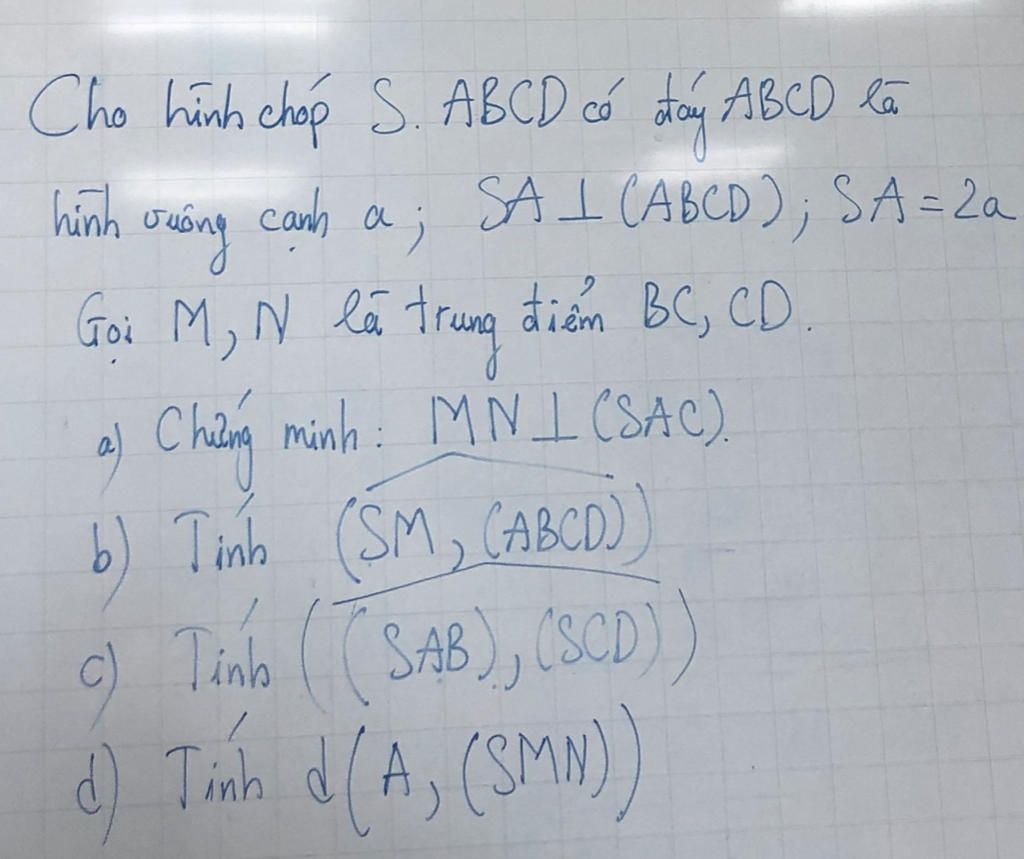 Cho hình chóp S. ABCD có đáy ABCD là
hình vuông cạnh a; SA ⊥ (ABCD); SA = 2a
Gọi M, N là trung điểm BC, CD.
a) Chứng minh: MN ⊥ (SAC).
b) Tính (SM, (ABCD))
c) Tính ((SAB), (SCD))
d) Tính d(A, (SMN))